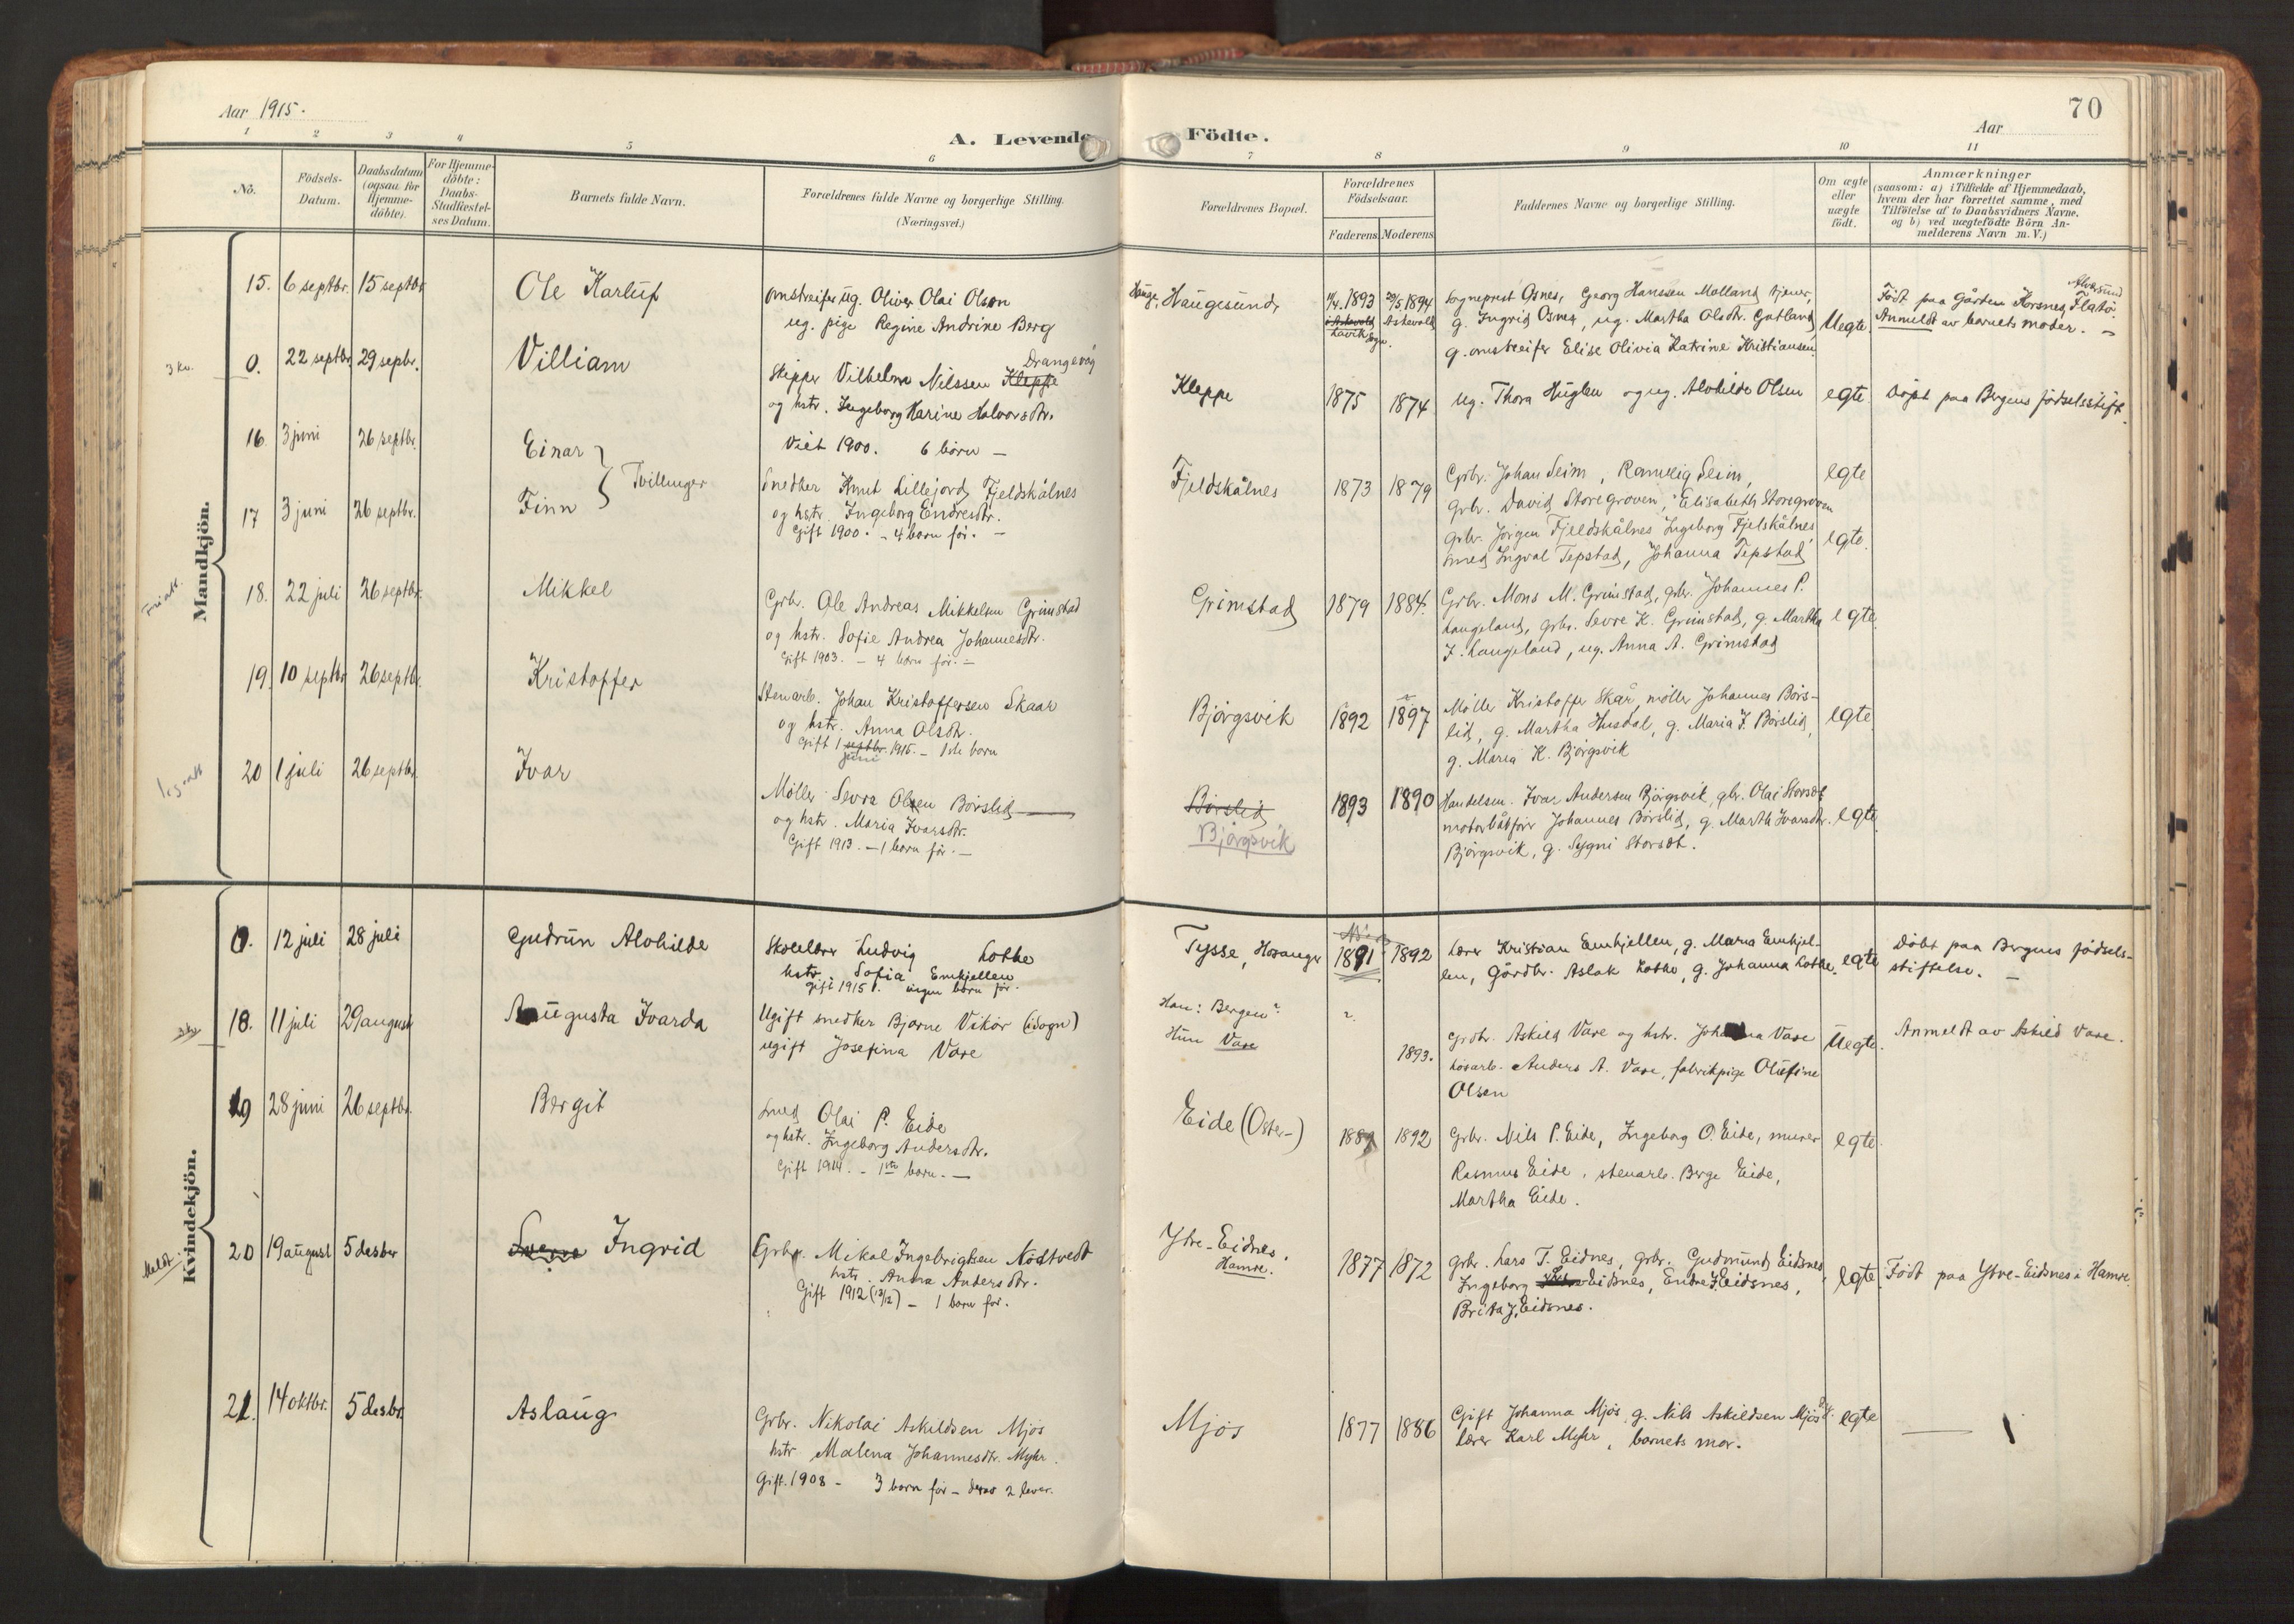 Aar 1915.
A. Levende Födte.
Aar
70
1 2 3 4 5 6 7 8 9 10 11
No.
Födsels-
Datum.
Daabsdatum
(ogsaa for
Hjemme-
döbte).
For Hjemme-
döbte:
Daabs-
Stadfæstel-
ses Datum.
Barnets fulde Navn.
Forældrenes fulde Navne og borgerlige Stilling.
(Næringsvei.)
Forældrenes Bopæl.
Forældrenes
Födselsaar.
Faderens Moderens
Faddernes Navne og borgerlige Stilling.
Om ægte
eller
uægte
födt.
Anmærkninger
(saasom: a) i Tilfælde af Hjemmedaab,
hvem der har forrettet samme, med
Tilföielse af to Daabsvidners Navne,
og b) ved uægtefödte Börn An-
melderens Navn m. V.)
Mandkjön.
15. 6 septbr. 15 septbr Ole Karluf
omstreifer ug. Oliver Olai Olson
ug. pige Regine Andrine Berg
Hauge, Haugesund,
1893 1894
Askevold
Sogneprest Osnes, Georg Hanssen Molland tjener,
g. Ingrid Osnes, ug. Martha Olsdr. Gutland,
g. omstreifer Elise Olivia Katrine Kristiansen
Uegte.
Alversund
Födt paa Gården Korsnes, Flatö.
Anmeldt av barnets moder. –
3 kv.
0. 22 septbr 29 sepbr. Villiam
Drangevåg
Skipper Vilhelm Nilssen Kleppe
og hstr. Ingeborg Karine Halvorsdtr.
Viet 1900. 6 börn –
Kleppe 1875 1874
Ug. Thora Huglen og ug. Alvhilde Olsen
egte
Döpt paa Bergens födselsstift.
16. 3 juni 26 septbr. Einar
Tvillinger
17 3 juni 26 septbr. Finn
Snedker Knut Lillejord Fjeldskålnes
og hstr. Ingeborg Endresdtr.
Gift 1900. – 4 barn för. –
Fjeldskålnes 1873 1879
Grbr. Johan Seim, Ranveig Seim,
Grbr. David Storegroven, Elisabeth Storegroven
Grbr. Jörgen Fjeldskålnes Ingeborg Fjelskålnes,
smed Ingval Tepstad, Johanna Tepstad
egte
egte.
18. 22 juli 26 septbr. Mikkel
Grbr. Ole Andreas Mikkelsen Grimstad
og hstr. Sofie Andrea Johannesdtr.
Gift 1903. – 4 barn för. –
Grimstad 1879 1884.
Grbr. Mons M. Grimstad, grbr. Johannes P.
Langeland, grbr. Sevre K. Grimstad, g. Martha
J. Langeland, ug. Anna A. Grimstad
egte.
19. 10 septbr 26 septbr. Kristoffer
Stenarb. Johan Kristoffersen Skaar
og hstr. Anna Olsdtr.
Gift 1 septbr. 1915. – 1ste barn
juni
Bjørgsvik 1892 1897
Möller Kristoffer Skår, möller Johannes Börs-
lid, g. Martha Husdal, g. Maria J. Börslid,
g. Maria K. Bjørgsvik
egte
20 1 juli 26 septbr. Ivar
Möller Sevre Olsen Börslid
og hstr. Maria Ivarsdtr.
Gift 1913. – 1 barn för. –
Börslid
Bjørgsvik
1893 1890
Handelsm. Ivar Andersen Bjørgsvik, gbr. Olai Storset
motorbåtförer Johannes Börslid, g. Martha Ivarsdtr.
Bjørgsvik, g. Sygni Storset.
egte.
Kvindekjön.
0. 12 juli 28 juli Gudrun Alvhilde
Skolelærer Ludvig Lothe
hstr. Sofia Emhjellen
Gift 1915. ingen barn för.
Tysse, Hosanger 1891 1892
Lærer Kristian Emhjellen, g. Maria Emhjel-
len, Gårdbr. Aslak Lothe, g. Johanna Lothe.
egte
Döbt paa Bergens födsels-
stiftelse. –
18. 11 juli 29 august Augusta Ivarda
Ugift snedker Bjarne Vikör (i Sogn)
ugift Josefina Vare
Han: Bergen?
Hun Vare
?
1893.
Grbr. Askild Vare og hstr. Johanna Vare
Anders A. Vare, fabrikpige Olufine
Olsen
Uegte.
Anmeldt av Askild Vare.
19 28 juni 26 septbr. Bergit
Smed Olai P. Eide
og hstr. Ingeborg Andersdtr.
Gift 1914. – 1ste barn. –
Eide (Oster-) 1889 1892
Grbr. Nils P. Eide, Ingeborg O. Eide, murer
Rasmus Eide, stenarb. Berge Eide,
Martha Eide.
egte.
20 19 august 5 desber Ingrid
Grbr. Mikal Ingebrigtsen Nödtvedt
hstr. Anna Andersdtr.
Gift 1912 (12/12) – 1 barn för.
Ytre-Eidnes,
Hamre.
1877 1872
Grbr. Lars T. Eidnes, Grbr. Gudmund Eidsnes,
Ingeborg Eidnes, Endre J. Eidsnes,
Brita J. Eidsnes.
egte.
Födt paa Ytre-Eidsnes i Hamre.
21. 14 oktbr. 5 desbr. Aslaug
Grbr. Nikolai Askildsen Mjös
hstr Malena Johannesdtr. Myhr.
Gift. 1908 – 3 barn för – derav 2 lever.
Mjös 1877 1886
Gift Johanna Mjös, g. Nils Askildsen Mjös
lærer Karl Myhr, barnets mor.
egte